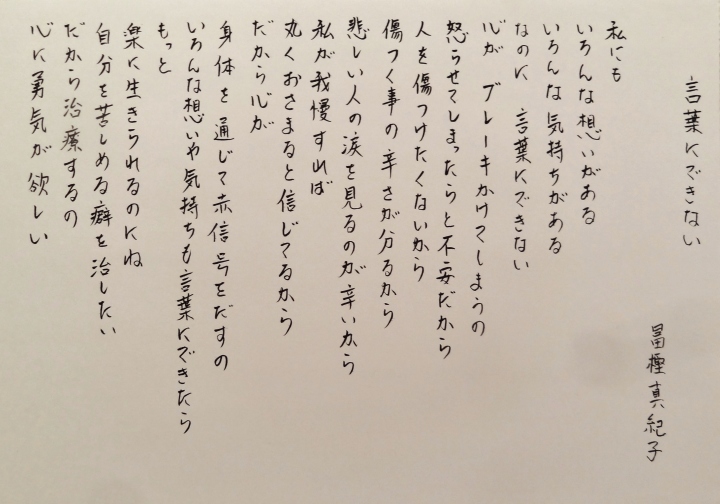 言葉にできない
冨樫真紀子
私にも
いろんな想いがある
いろんな気持ちがある
なのに 言葉にできない
心が ブレーキかけてしまうの
怒らせてしまったらと不安だから
人を傷つけたくないから
傷つく事の辛さが分るから
悲しい人の涙を見るのが辛いから
私が我慢すれば
丸くおさまると信じてるから
だから心が
身体を通じて赤信号をだすの
いろんな想いや気持ちも言葉にできたら
もっと
楽に生きられるのにね
自分を苦しめる癖を治したい
だから治療するの
心に勇気が欲しい